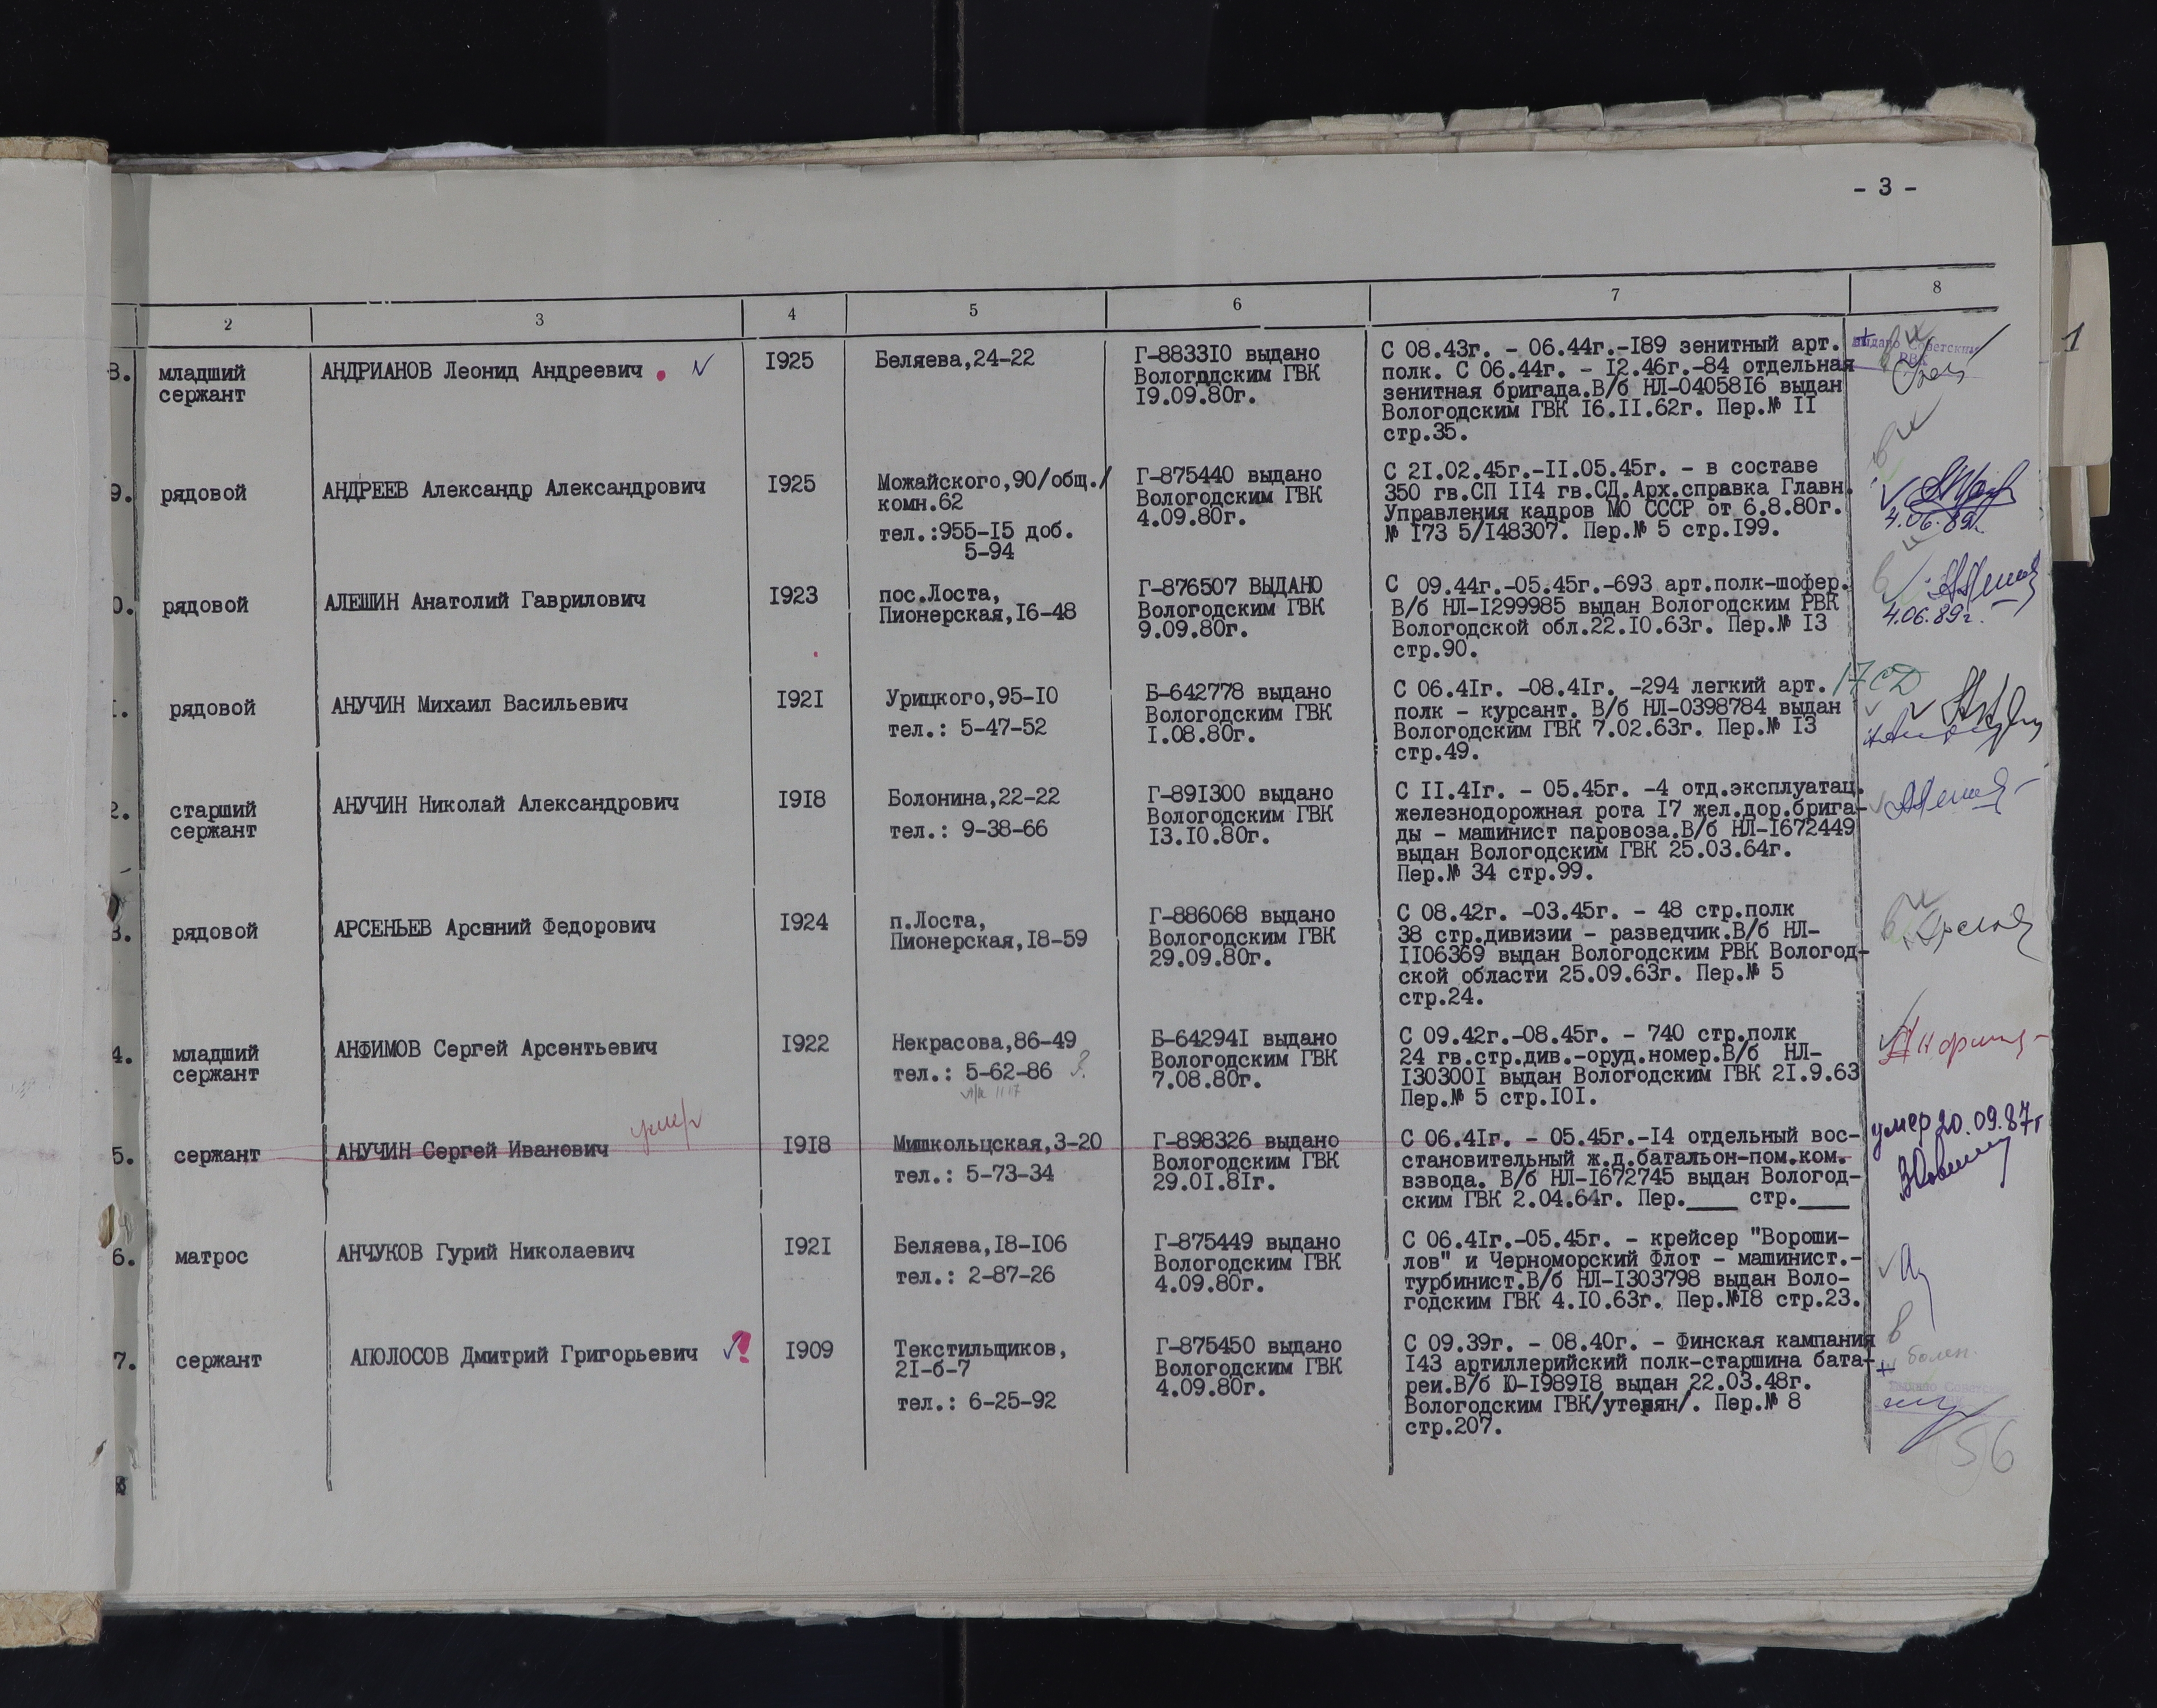 - 3 -
2 3 4 5 6 7 8
8. младший сержант
АНДРИАНОВ Леонид Андреевич
1925
Беляева,24-22
Г-883310 выдано
Вологддским ГВК
19.09.80г.
С 08.43г. - 06.44г.-189 зенитный арт.
полк. С 06.44г. - 12.46г.-84 отдельная
зенитная бригада.В/б НЛ-0405816 выдан
Вологодским ГВК 16.11.62г. Пер.№ 11
стр.35.
выдано Советским
РВК
9. рядовой
АНДРЕЕВ Александр Александрович
1925
Можайского,90/общ./
комн.62
тел.:955-15 доб.
5-94
Г-875440 выдано
Вологодским ГВК
4.09.80г.
С 21.02.45г.-11.05.45г. - в составе
350 гв.СП 114 гв.СД.Арх.справка Главн.
Управления кадров МО СССР от 6.8.80г.
№ 173 5/148307. Пер.№ 5 стр.199.
4.06.89г.
0. рядовой
АЛЕШИН Анатолий Гаврилович
1923
пос.Лоста,
Пионерская,16-48
Г-876507 ВЫДАНО
Вологодским ГВК
9.09.80г.
С 09.44г.-05.45г.-693 арт.полк-шофер.
В/б НЛ-1299985 выдан Вологодским РВК
Вологодской обл.22.10.63г. Пер.№ 13
стр.90.
4.06.89г.
1. рядовой
АНУЧИН Михаил Васильевич
1921
Урицкого,95-10
тел.: 5-47-52
Б-642778 выдано
Вологодским ГВК
1.08.80г.
С 06.41г. -08.41г. -294 легкий арт.
полк - курсант. В/б НЛ-0398784 выдан
Вологодским ГВК 7.02.63г. Пер.№ 13
стр.49.
17 СД
2. старший
сержант
АНУЧИН Николай Александрович
1918
Болонина,22-22
тел.: 9-38-66
Г-891300 выдано
Вологодским ГВК
13.10.80г.
С 11.41г. - 05.45г. -4 отд.эксплуатац.
железнодорожная рота 17 жел.дор.брига-
ды - машинист паровоза.В/б НЛ-1672449
выдан Вологодским ГВК 25.03.64г.
Пер.№ 34 стр.99.
3. рядовой
АРСЕНЬЕВ Арсений Федорович
1924
п.Лоста,
Пионерская,18-59
Г-886068 выдано
Вологодским ГВК
29.09.80г.
С 08.42г. -03.45г. - 48 стр.полк
38 стр.дивизии - разведчик.В/б НЛ-
1106369 выдан Вологодским РВК Вологод-
ской области 25.09.63г. Пер.№ 5
стр.24.
4. младший
сержант
АНФИМОВ Сергей Арсентьевич
1922
Некрасова,86-49
тел.: 5-62-86 ?
Б-642941 выдано
Вологодским ГВК
7.08.80г.
С 09.42г.-08.45г. - 740 стр.полк
24 гв.стр.див.-оруд.номер.В/б НЛ-
1303001 выдан Вологодским ГВК 21.9.63
Пер.№ 5 стр.101.
5. сержант
АНУЧИН Сергей Иванович
умер
1918
Мишкольцская,3-20
тел.: 5-73-34
Г-898326 выдано
Вологодским ГВК
29.01.81г.
С 06.41г. - 05.45г.-14 отдельный вос-
становительный ж.д.батальон-пом.ком.
взвода. В/б НЛ-1672745 выдан Вологод-
ским ГВК 2.04.64г. Пер.____ стр.____
умер 20.09.87г
6. матрос
АНЧУКОВ Гурий Николаевич
1921
Беляева,18-106
тел.: 2-87-26
Г-875449 выдано
Вологодским ГВК
4.09.80г.
С 06.41г.-05.45г. - крейсер "Вороши-
лов" и Черноморский Флот - машинист.-
турбинист.В/б НЛ-1303798 выдан Воло-
годским ГВК 4.10.63г. Пер.№18 стр.23.
7. сержант
АПОЛОСОВ Дмитрий Григорьевич
1909
Текстильщиков,
21-б-7
тел.: 6-25-92
Г-875450 выдано
Вологодским ГВК
4.09.80г.
С 09.39г. - 08.40г. - Финская кампания
143 артиллерийский полк-старшина бата-
реи.В/б Ю-198918 выдан 22.03.48г.
Вологодским ГВК/утерян/. Пер.№ 8
стр.207.
болен.
56
1